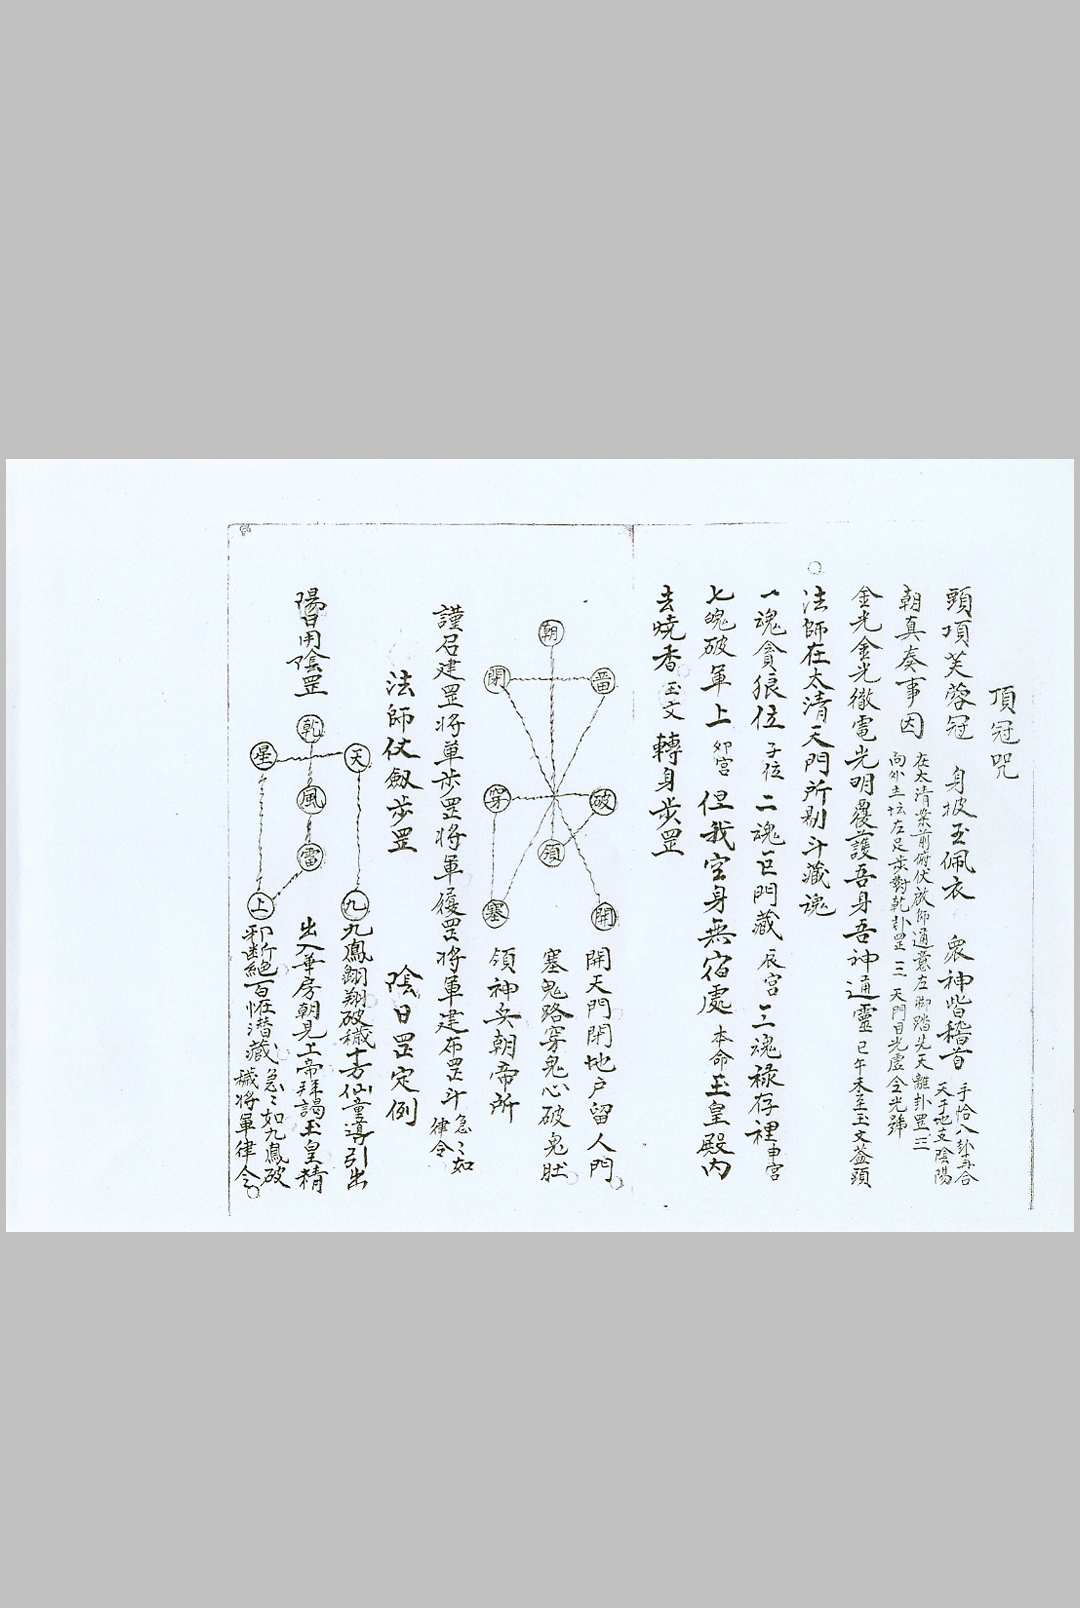 頂冠咒
頭頂芙蓉冠 身披玉佩衣 衆神皆稽首 手恰八卦再合
天干地支陰陽
朝真奏事因 在太清案前俯伏啟師通意左脚踏先天離卦罡三
向外主坛左足步對乾卦罡三天門目光虛全光號
金光金光徹電光明覆護吾身吾神通靈 巳午未至玉文蓋頭
○法師在太清天門所剔斗藏魂
一魂貪狼位 子位 二魂巨門藏 辰宮 三魂禄存裡 申宮
七魄破軍上 卯宮 但我空身無宿處 本命 玉皇殿内
去燒香 玉文 轉身步罡
朝
閉 留
穿 破
領
塞 開
開天門閉地户留人門
塞鬼路穿鬼心破鬼肚
領神兵朝帝所
謹召建罡将軍步罡将軍履罡将軍建布罡斗 急〻如
律令
法師仗劔步罡 陰日罡定例
陽日用陰罡
乾
星 天
風
雷
上 九
九鳳翺翔破穢十方仙童導引出
出入華房朝見上帝拜謁玉皇精
邪断絕百怪潜藏 急〻如九鳳破
穢将軍律令